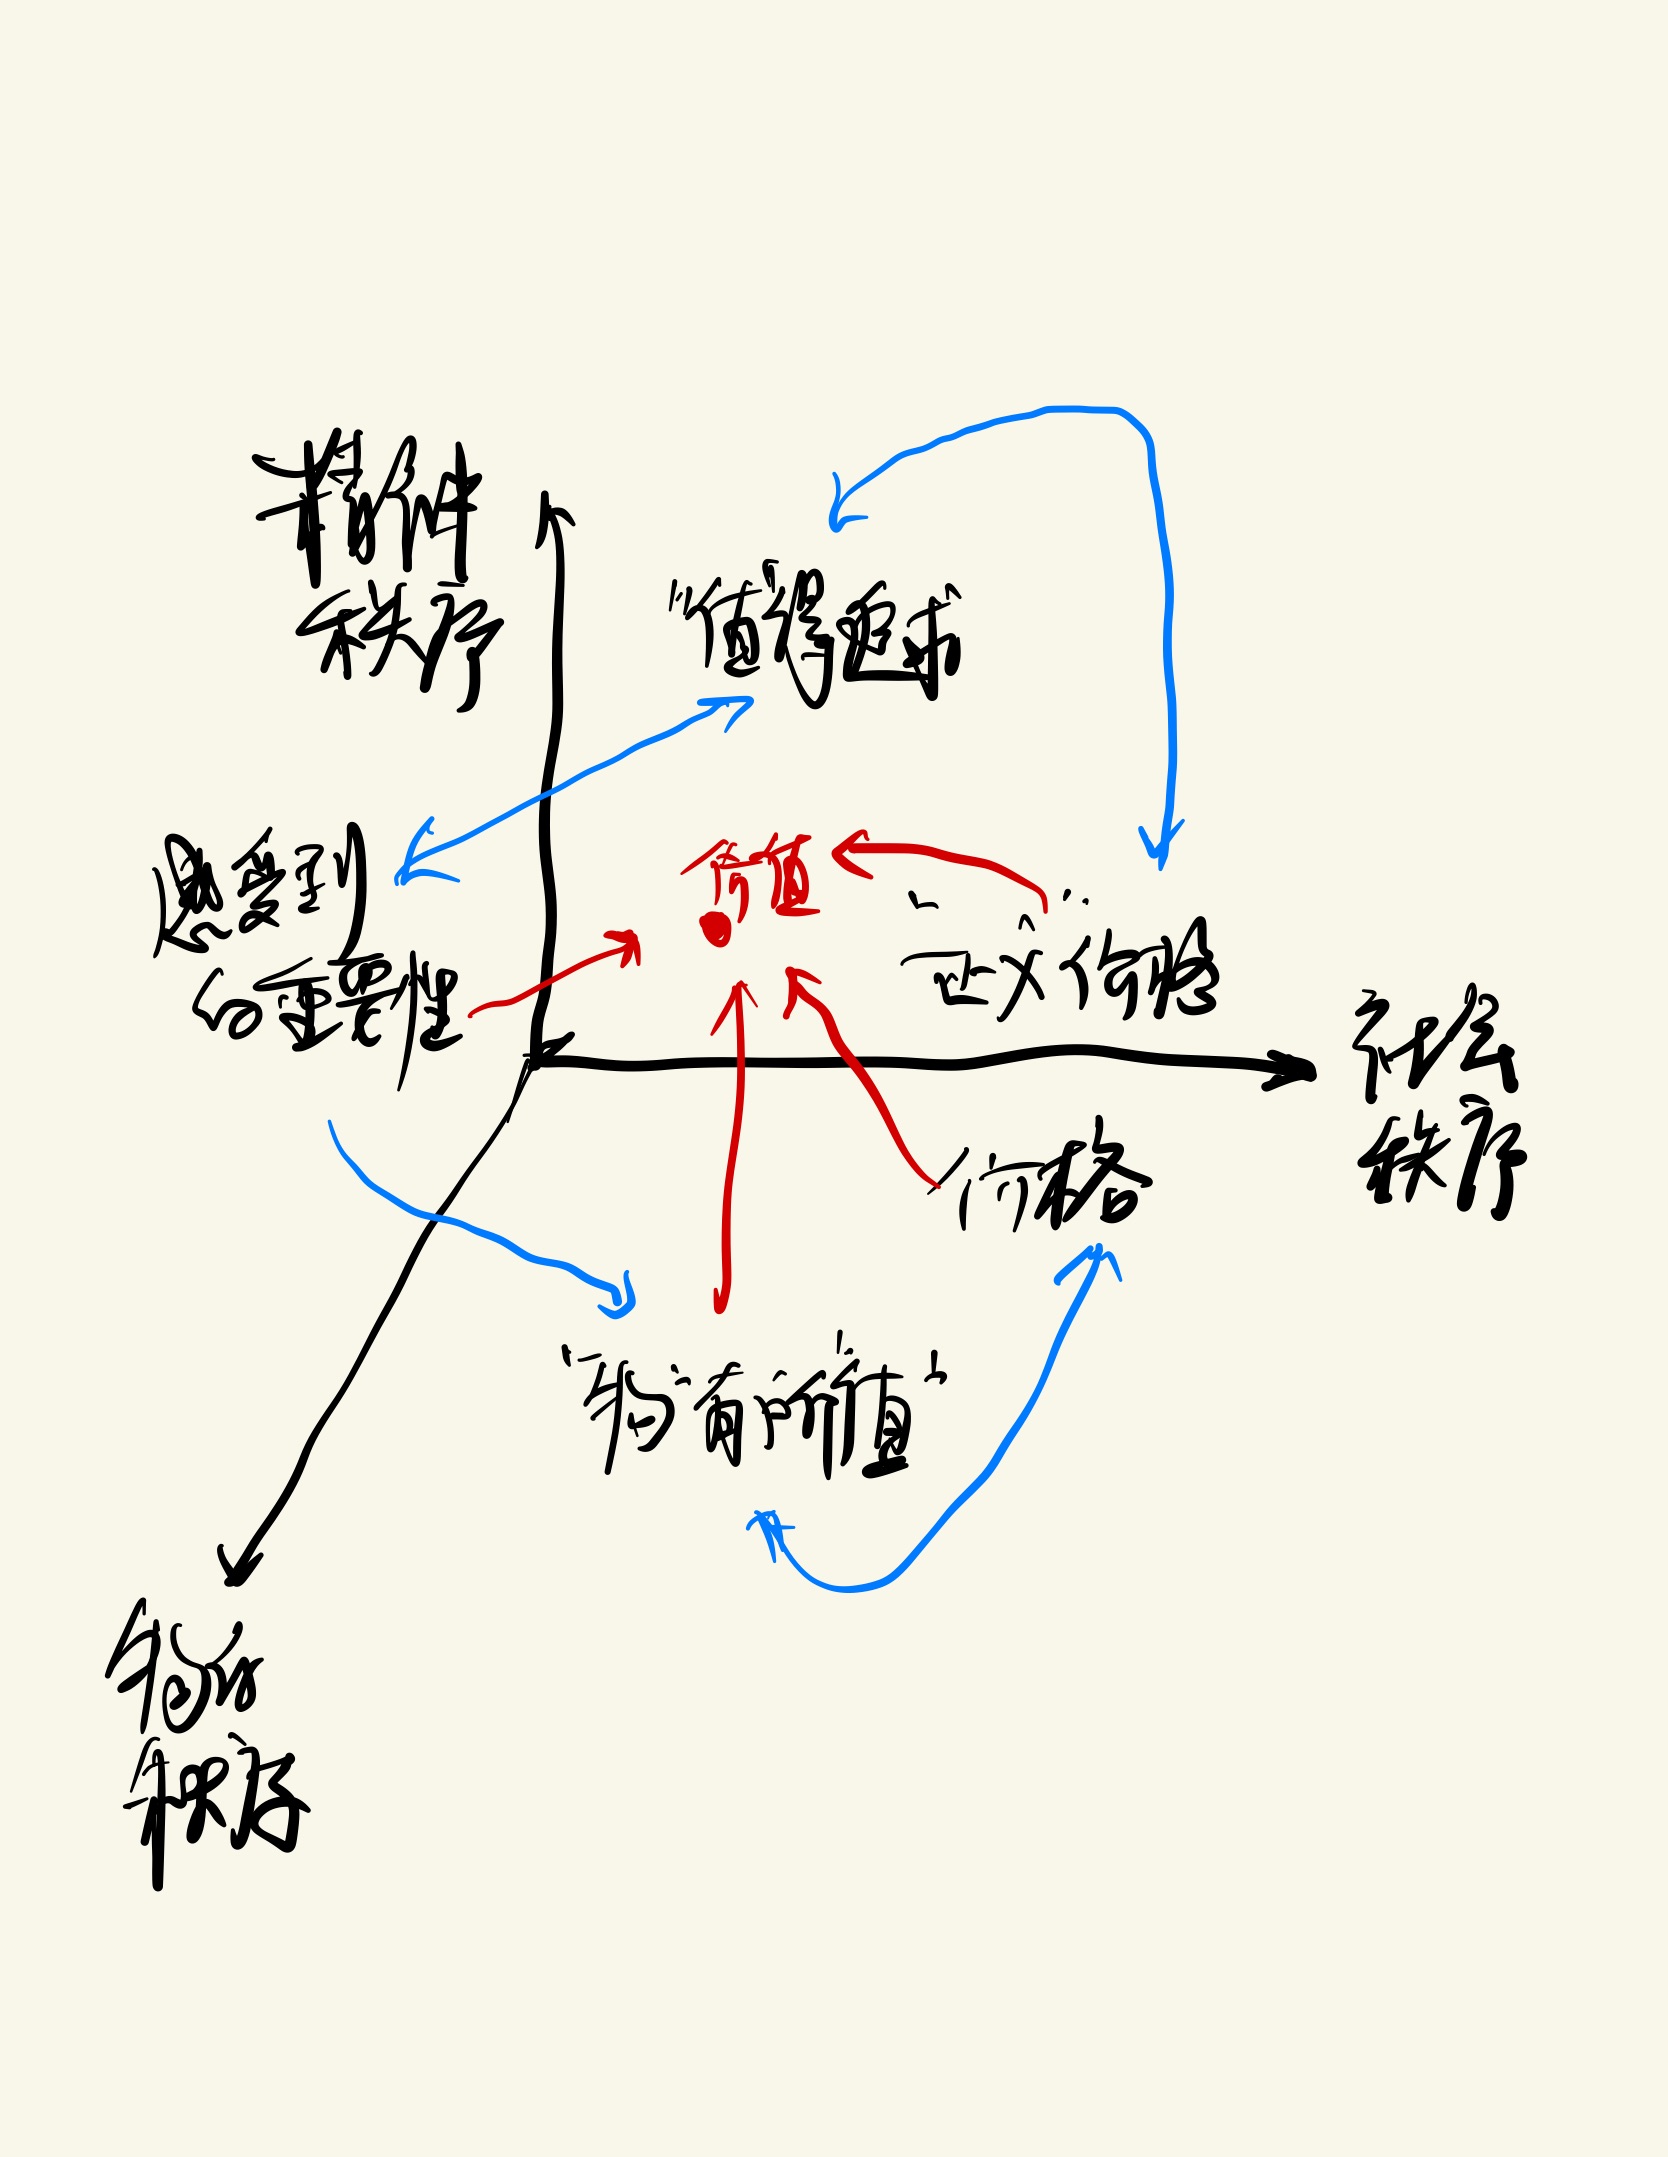 精神
秩序
“值得追求”
感受到
的重要性
价值
“正义价格”
社会
秩序
价格
“物”有所“值”
物质
秩序